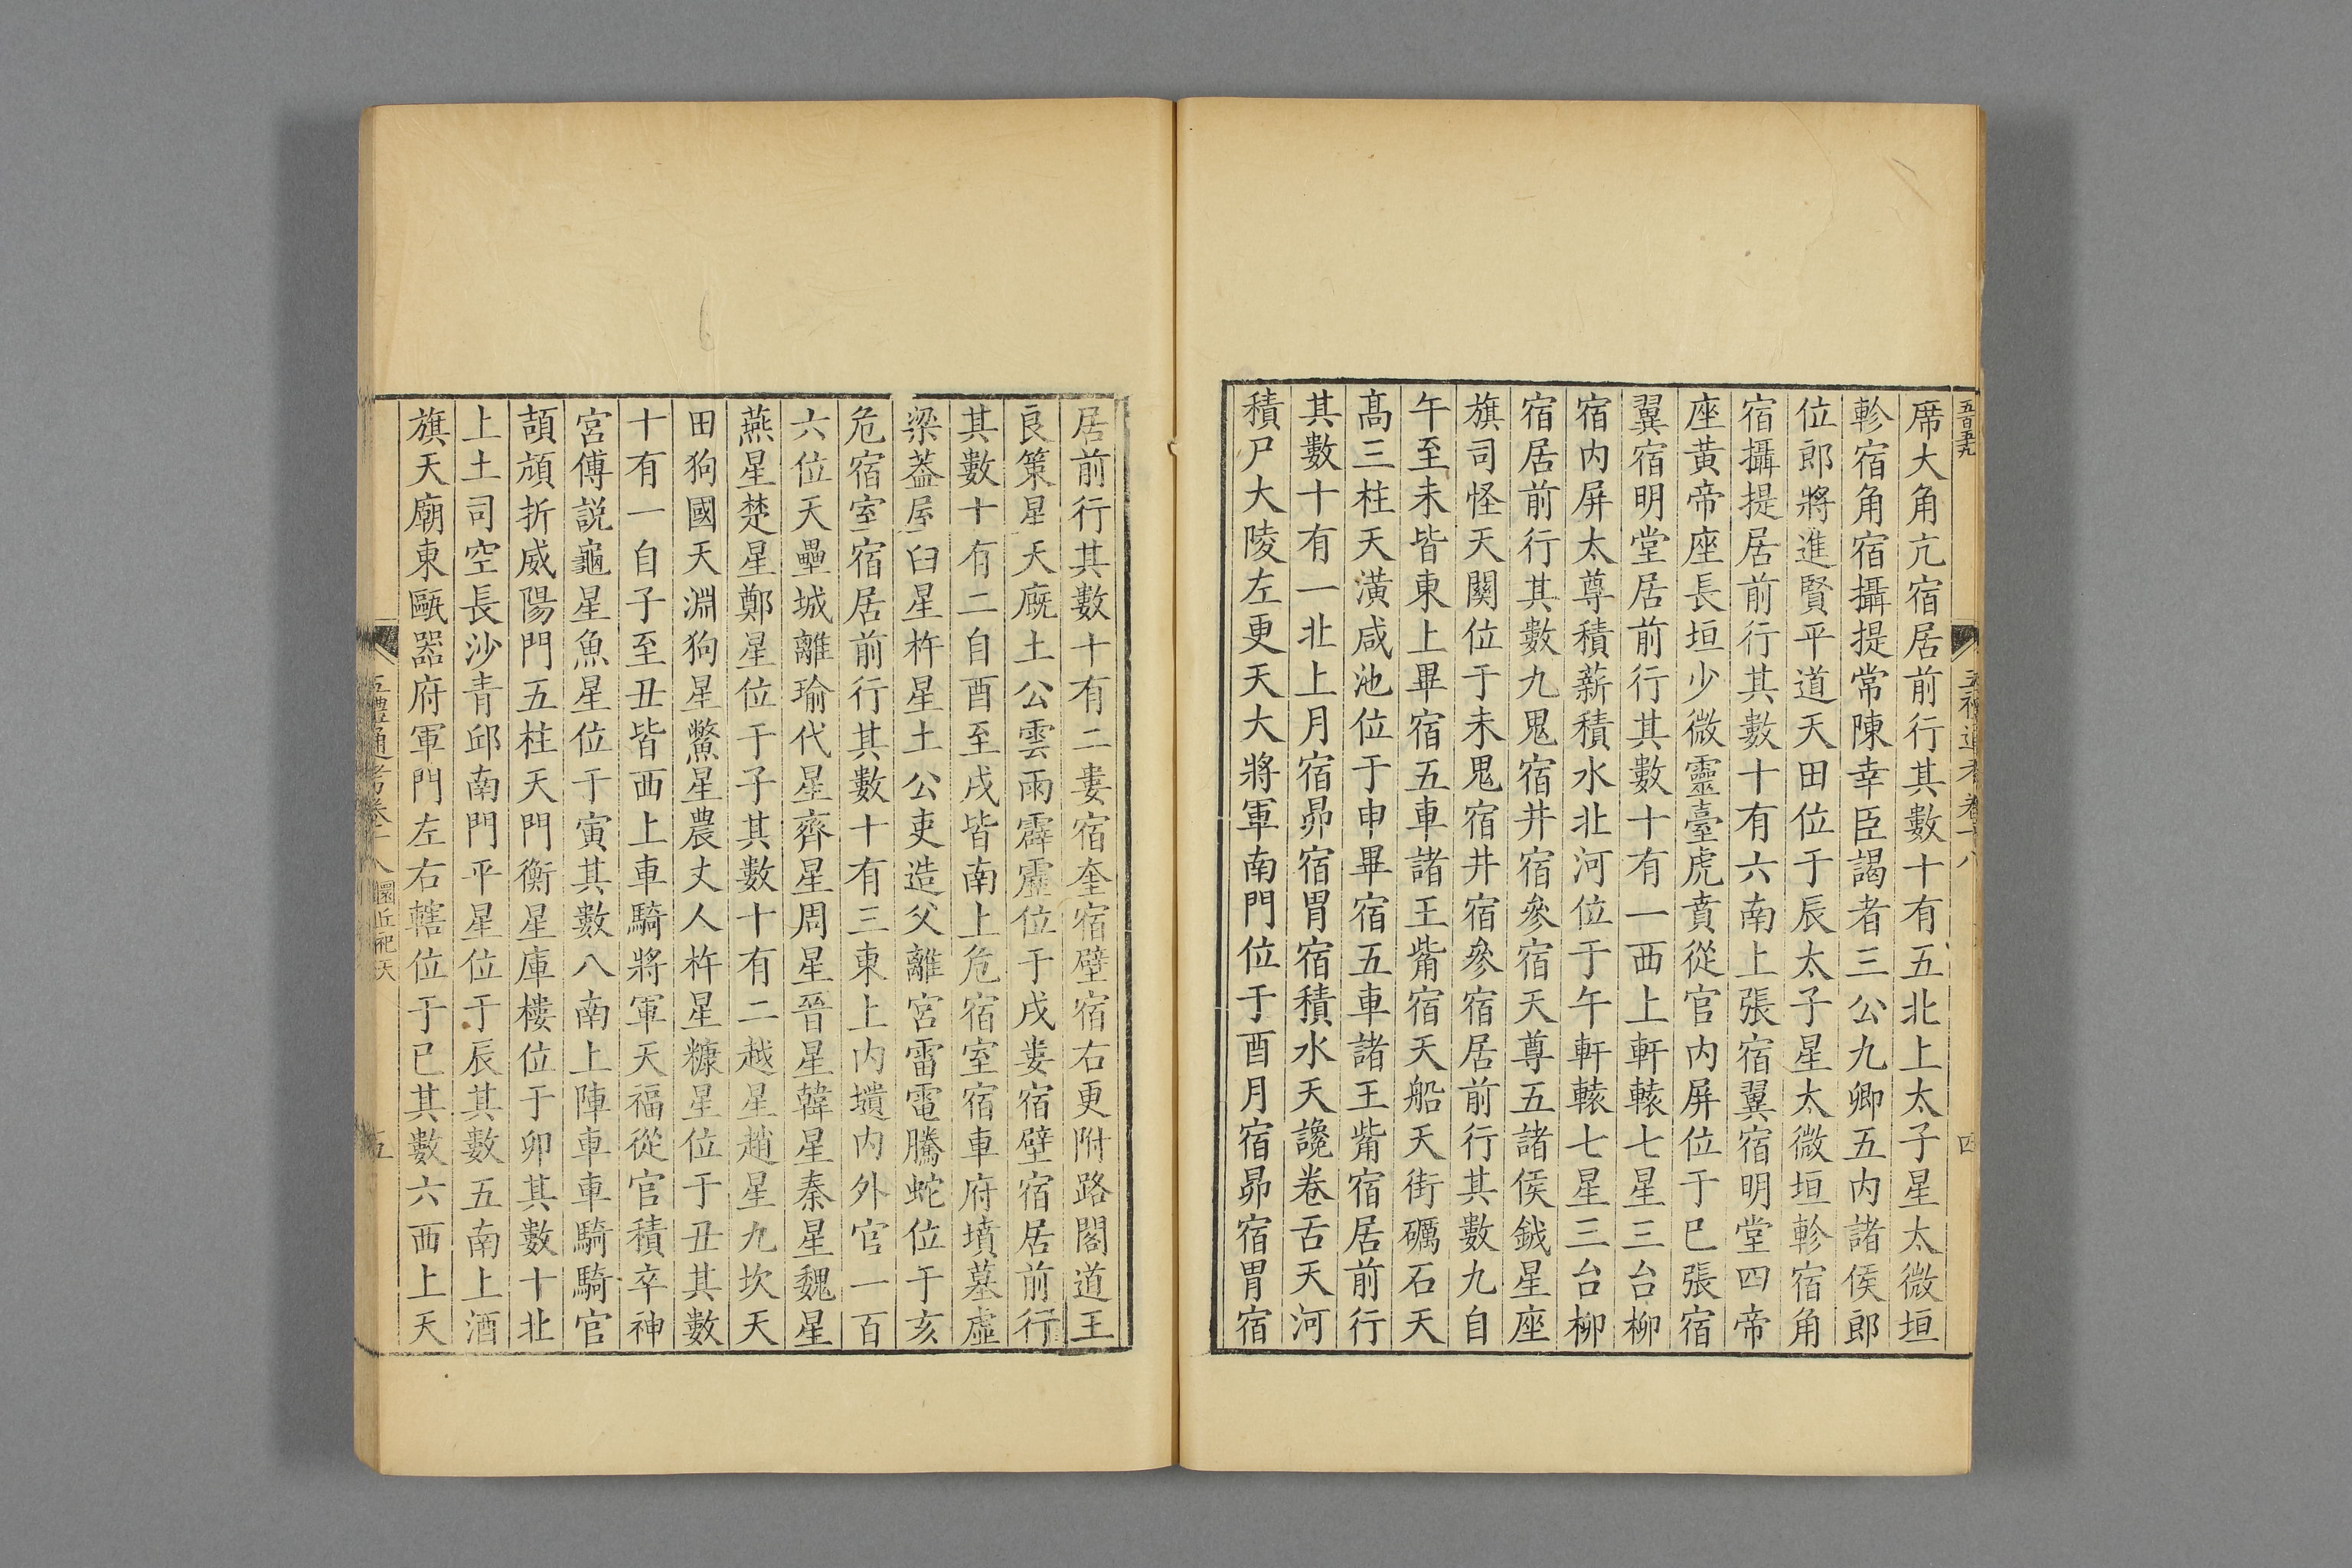 五百五九
五禮通考卷十八
四
席大角亢宿居前行其數十有五北上太子星太微垣
軫宿角宿攝提常陳幸臣謁者三公九卿五内諸侯郎
位郎將進賢平道天田位于辰太子星太微垣軫宿角
宿攝提居前行其數十有六南上張宿翼宿明堂四帝
座黄帝座長垣少微靈臺虎賁從官内屏位于巳張宿
翼宿明堂居前行其數十有一西上軒轅七星三台柳
宿内屏太尊積薪積水北河位于午軒轅七星三台柳
宿居前行其數九鬼宿井宿參宿天尊五諸侯鉞星座
旗司怪天關位于未鬼宿井宿參宿居前行其數九自
午至未皆東上畢宿五車諸王觜宿天船天街礪石天
髙三柱天潢咸池位于申畢宿五車諸王觜宿居前行
其數十有一北上月宿昴宿胃宿積水天讒卷舌天河
積尸大陵左更天大將軍南門位于酉月宿昴宿胃宿
居前行其數十有二婁宿奎宿壁宿右更附路閣道王
良策星天廐土公雲雨霹靂位于戌婁宿壁宿居前行
其數十有二自酉至戌皆南上危宿室宿車府墳墓虛
梁葢屋臼星杵星土公吏造父離宮雷電騰蛇位于亥
危宿室宿居前行其數十有三東上内壝内外官一百
六位天壘城離瑜代星齊星周星晉星韓星秦星魏星
燕星楚星鄭星位于子其數十有二越星趙星九坎天
田狗國天淵狗星鱉星農丈人杵星糠星位于丑其數
十有一自子至丑皆西上車騎將軍天福從官積卒神
宮傅説龜星魚星位于寅其數八南上陣車車騎騎官
頡頏折威陽門五柱天門衡星庫樓位于卯其數十北
上土司空長沙青邱南門平星位于辰其數五南上酒
旗天廟東甌器府軍門左右轄位于已其數六西上天
五禮通考卷十八 圜丘祀天
五